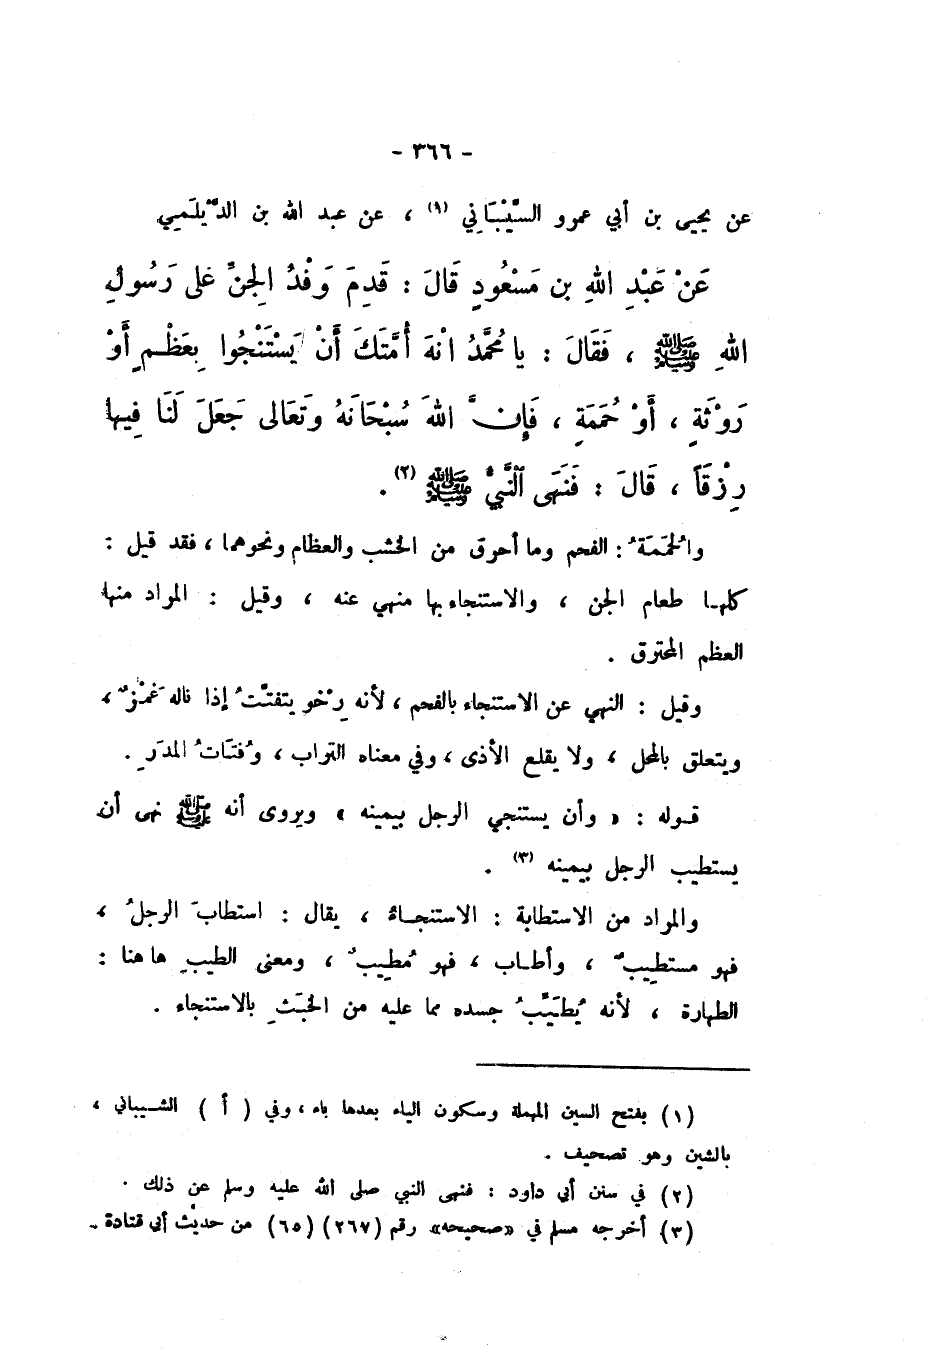 - ٣٦٦ -
عن يحيى بن أبي عمرو السَّيْبَاني (١) ، عن عبد الله بن الدَّيلَمي
عَنْ عَبْدِ اللهِ بن مَسْعُودٍ قَالَ : قَدِمَ وَفْدُ الجِنِّ عَلى رَسُولِ
اللهِ ﷺ ، فَقَالَ : يا مُحَمَّدُ انْهَ أُمَّتَكَ أَنْ يَسْتَنْجُوا بِعَظْمٍ أَوْ
رَوْثَةٍ ، أَوْ حُمَمَةٍ ، فَإِنَّ اللهَ سُبْحَانَهُ وَتَعَالى جَعَلَ لَنَا فِيها
رِزْقَاً ، قَالَ : فَنَهَى النَّبيُّ ﷺ (٢) .
والحُمَمَةُ : الفحم وما أحرق من الخشب والعظام ونحوهما ، فقد قيل :
كلهـا طعام الجن ، والاستنجاء بها منهي عنه ، وقيل : المراد منها
العظم المحترق .
وقيل : النهي عن الاستنجاء بالفحم ، لأنه رِخْو يتفتَّتُ إذا ناله غَمْزٌ ،
ويتعلق بالمحل ، ولا يقلع الأذى ، وفي معناه التراب ، وفُتَاتُ المدَرِ .
قـوله : « وأن يستنجي الرجل بيمينه » ويروى أنه ﷺ نهى أن
يستطيب الرجل بيمينه (٣) .
والمراد من الاستطابة : الاستنجـاءُ ، يقال : استطابَ الرجلُ ،
فهو مستطِيبٌ ، وأطـاب ، فهو مُطِيبٌ ، ومعنى الطيبِ ها هنا :
الطهارة ، لأنه يُطَيِّبُ جسده مما عليه من الخبَثِ بالاستنجاء .
(١) بفتح السين المهملة وسكون الياء بعدها باء ، وفي ( أ ) الشـيباني ،
بالشين وهو تصحيف .
(٢) في سنن أبي داود : فنهى النبي صلى الله عليه وسلم عن ذلك .
(٣) أخرجه مسلم في «صحيحه» رقم (٢٦٧) (٦٥) من حديث أبي قتادة .